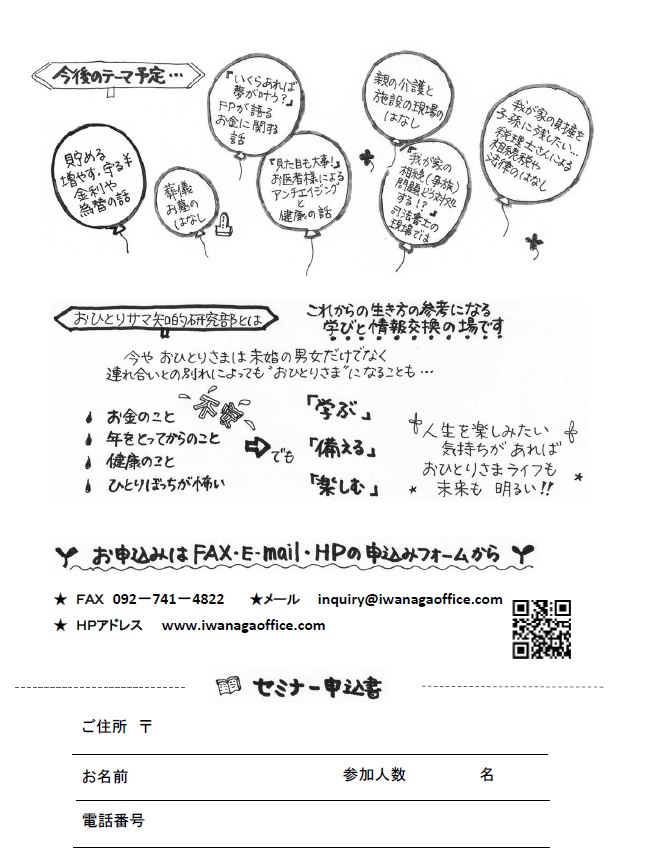 今後のテーマ予定…
『いくらあれば
夢が叶う?』
FPが語る
お金に関する
話
親の介護と
施設の現場の
はなし
我が家の財産を
子孫に残したい…
税理士さんによる
相続税や
法律のはなし
貯める
増やす・守る¥
金利や
為替の話
葬儀
お墓の
はなし
『見た目も大事!』
お医者様による
アンチエイジング
と
健康の話
『我が家の
相続(争族)
問題どう対処
する!?』
司法書士の
現場では
おひとりサマ知的研究部とは
これからの生き方の参考になる
学びと情報交換の場です
今や おひとりさまは 未婚の男女だけでなく
連れ合いとの別れによっても“おひとりさま”になることも…
不安
お金のこと
年をとってからのこと
健康のこと
ひとりぼっちが怖い
でも
「学ぶ」
「備える」
「楽しむ」
人生を楽しみたい
気持ちがあれば
おひとりさまライフも
未来も 明るい!!
お申込みはFAX・E-mail・HPの申込みフォームから
★ FAX 092－741－4822 ★メール inquiry@iwanagaoffice.com
★ HPアドレス www.iwanagaoffice.com
セミナー申込書
ご住所 〒
お名前 参加人数 名
電話番号